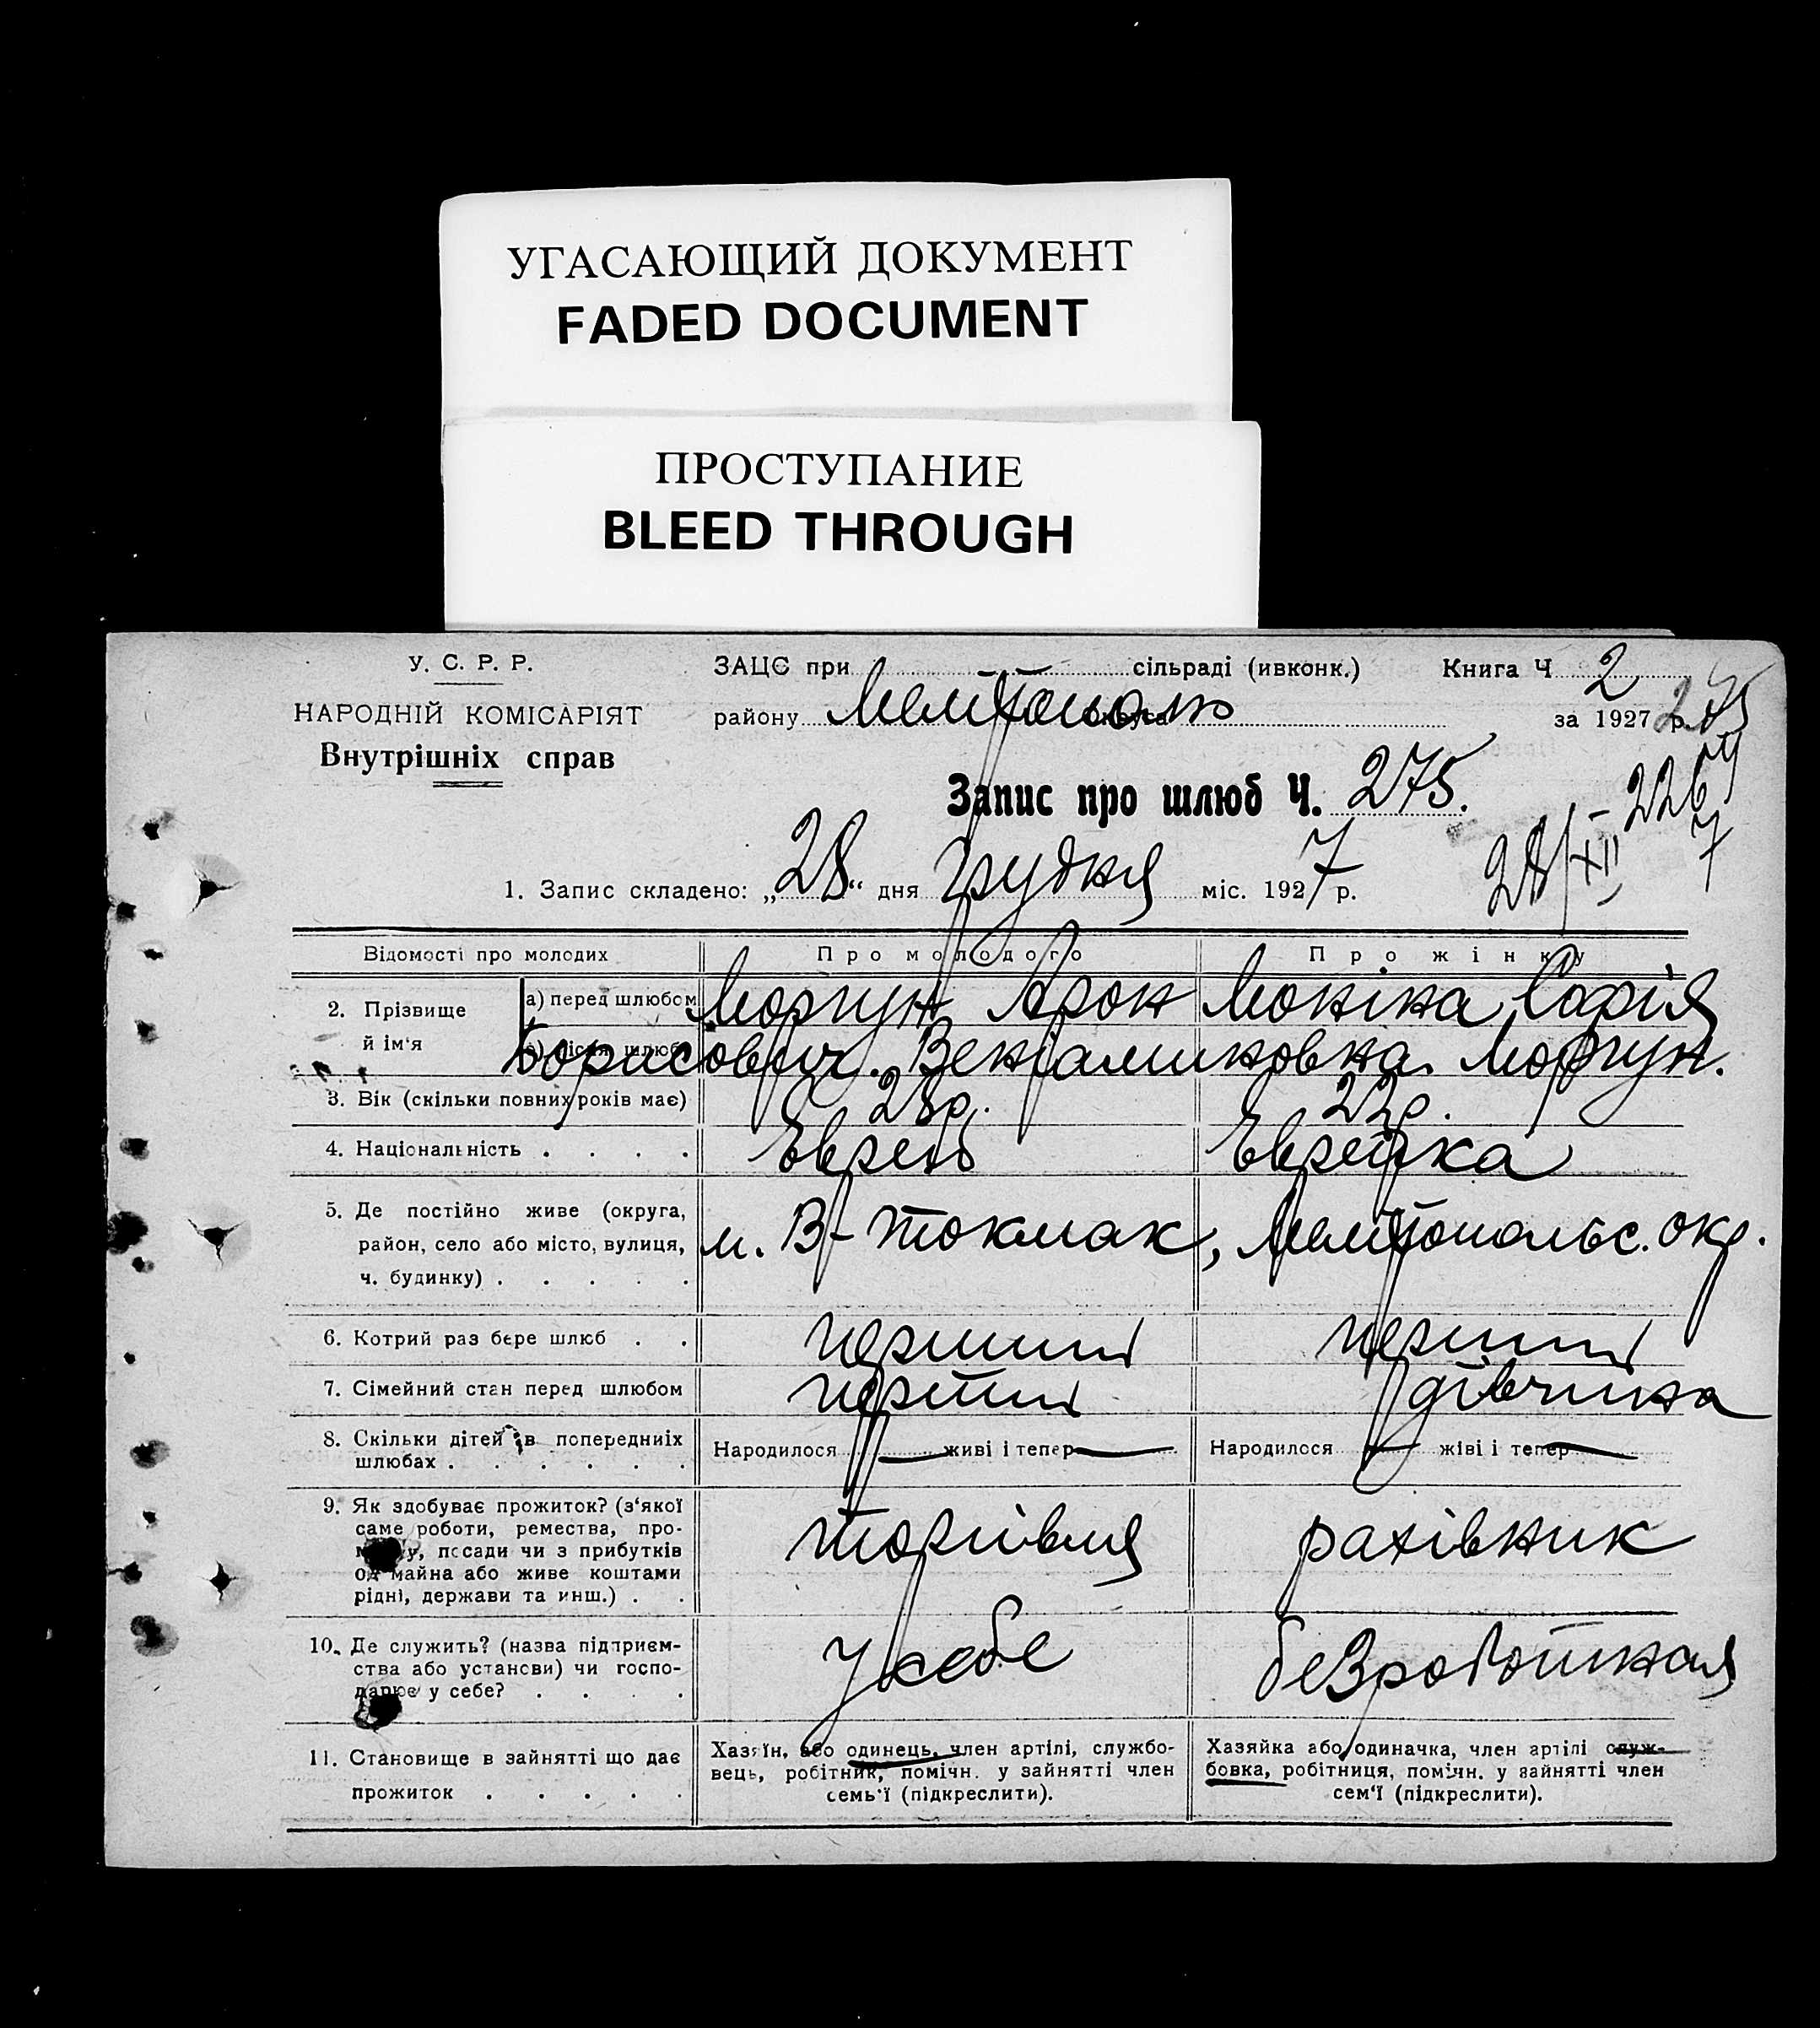 УГАСАЮЩИЙ ДОКУМЕНТ
FADED DOCUMENT
ПРОСТУПАНИЕ
BLEED THROUGH
У. С. Р. Р.
НАРОДНІЙ КОМІСАРІЯТ
Внутрішніх справ
ЗАЦС при сільраді (ивконк.) Книга Ч 2
району Мелітополь за 1927 р. 275
Запис про шлюб Ч. 275.
28/XII
1. Запис складено: „28“ дня Грудня міс. 1927 р.
Відомості про молодих Про молодого Про жінку
2. Прізвище й ім‘я а) перед шлюбом Моргун Арон Моніна Софія
Борисович. Веніаминовна. Моргун.
3. Вік (скільки повних років має) 28р. 22р.
4. Національність . . . . Еврей Еврейка
5. Де постійно живе (округа,
район, село або місто, вулиця, м. В-Токмак, Мелітопольс. окр.
ч. будинку) . . . . .
6. Котрий раз бере шлюб . . перший перший
7. Сімейний стан перед шлюбом перший дівчина
8. Скільки дітей в попередниіх
шлюбах . . . . . . Народилося — живі і тепер — Народилося — жіві і тепер —
9. Як здобуває прожиток? (з‘якої
саме роботи, ремества, про-
у, посади чи з прибутків торгівля рахівник
од майна або живе коштами
рідні, держави та инш.) . .
10. Де служить? (назва підприєм-
ства або установи) чи госпо- У себе безработная
дарює у себе? . . . .
11. Становище в зайнятті що дає
прожиток . . . . .
Хазяїн, або одинець, член артілі, службо-
вець, робітник, помічн. у зайнятті член
семь‘ї (підкреслити).
Хазяйка або одиначка, член артілі служ-
бовка, робітниця, помічн. у зайнятті член
сем‘ї (підкреслити).